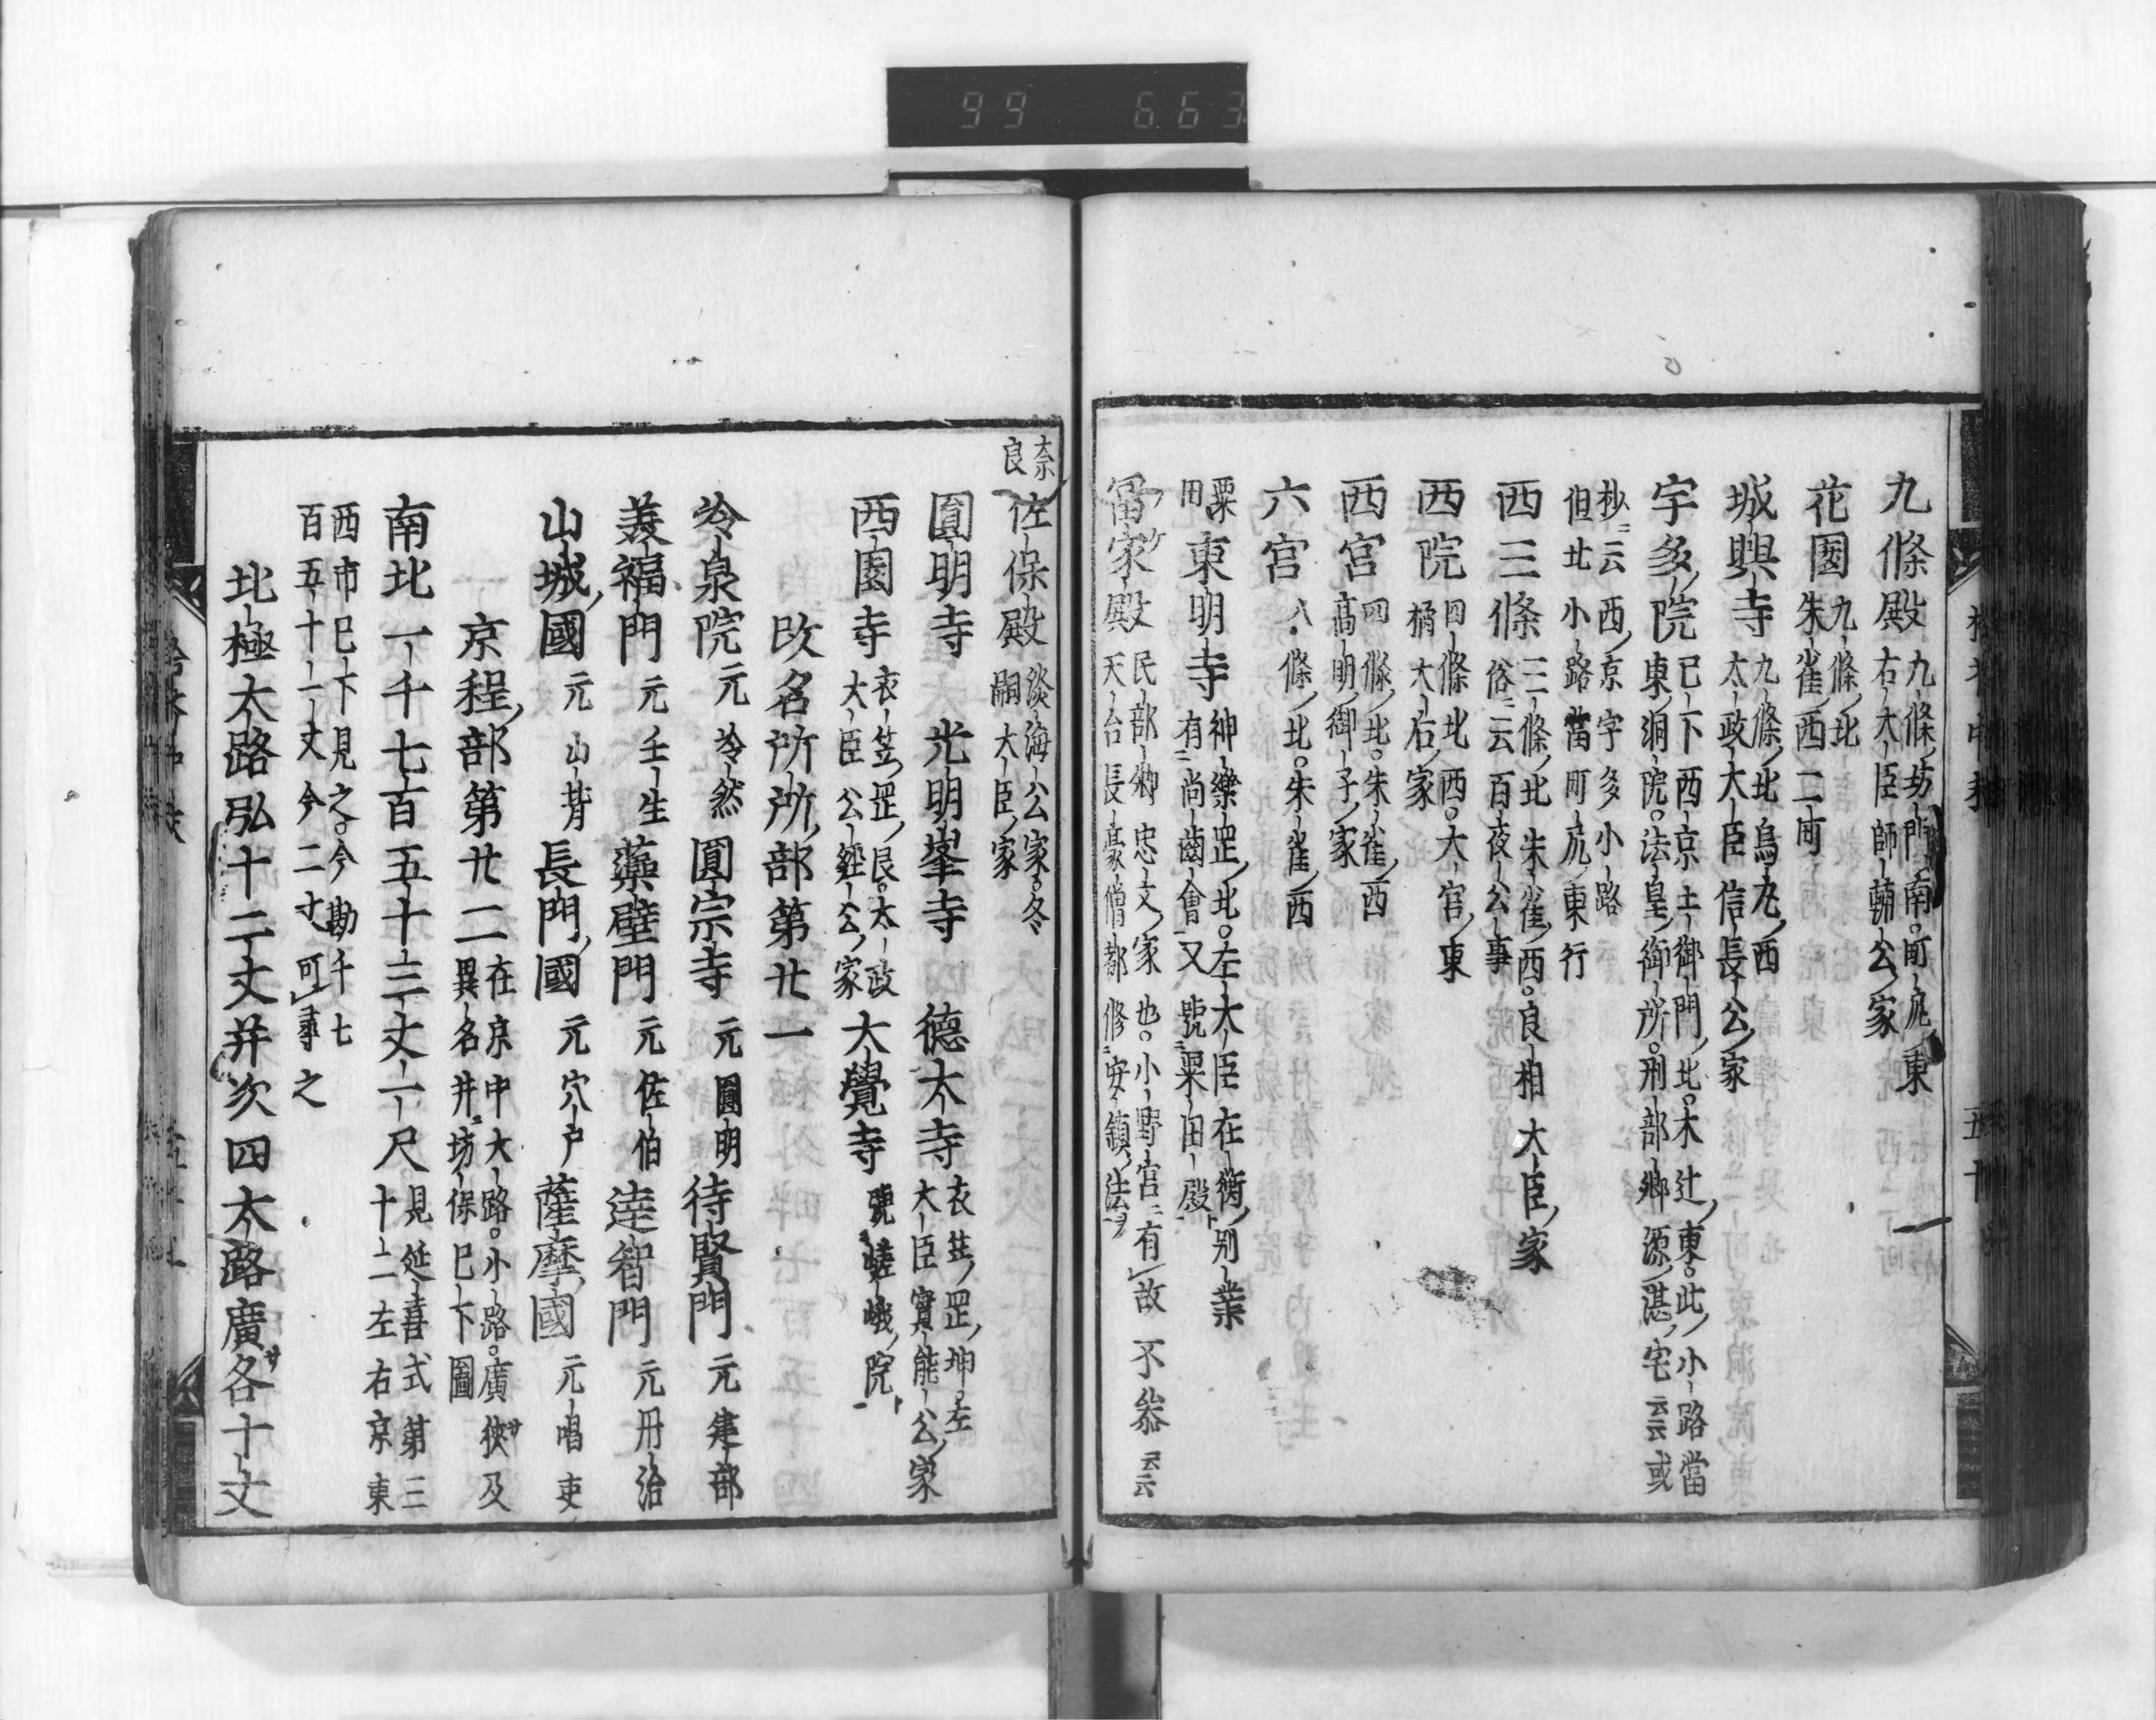 九條殿 九條坊門南。町尻東
右大臣師輔公家
花園 九條北
朱雀西二町
城興寺 九條北烏丸西
太政大臣信長公家
宇多院 已下西京土御門北。木辻東。此小路當
東洞院。法皇御所。刑部卿源湛宅云云或
抄云西京宇多小路
但北小路當町尻東行
西三條 三條北朱雀西。良相大臣家
俗云百夜公事
西院 四條北西。大宮東
橘大右家
西宮 四條北。朱雀西
高明御子家
六宮 八條北。朱雀西
粟田 東明寺 神樂岡北。左大臣在衡別業
有尚齒會又號粟田殿
冨家殿 民部卿忠文家也。小野宮有故不參云云
天台長豪僧都修安鎮法
奈良 佐保殿 淡海公家。冬
嗣大臣家
圓明寺 光明峯寺 德大寺 衣笠罡坤。左
大臣實能公家
西園寺 衣笠罡艮。太政
大臣公經公家 大覺寺 號嵯峨院
改名所所部第廿一
冷泉院 元冷然 圓宗寺 元圓明 待賢門 元建部
美福門 元壬生 藻壁門 元佐伯 達智門 元丹治
山城國 元山背 長門國 元穴戸 薩摩國 元唱更
京程部第廿二 在京中大路。小路。廣狹及
異名并坊保已下圖
南北一千七百五十三丈一尺 見延喜式第三
十二左右京東
西市已下見之。今勘千七
百五十一丈今二寸可尋之
北極大路弘十二丈并次四大路廣各十丈